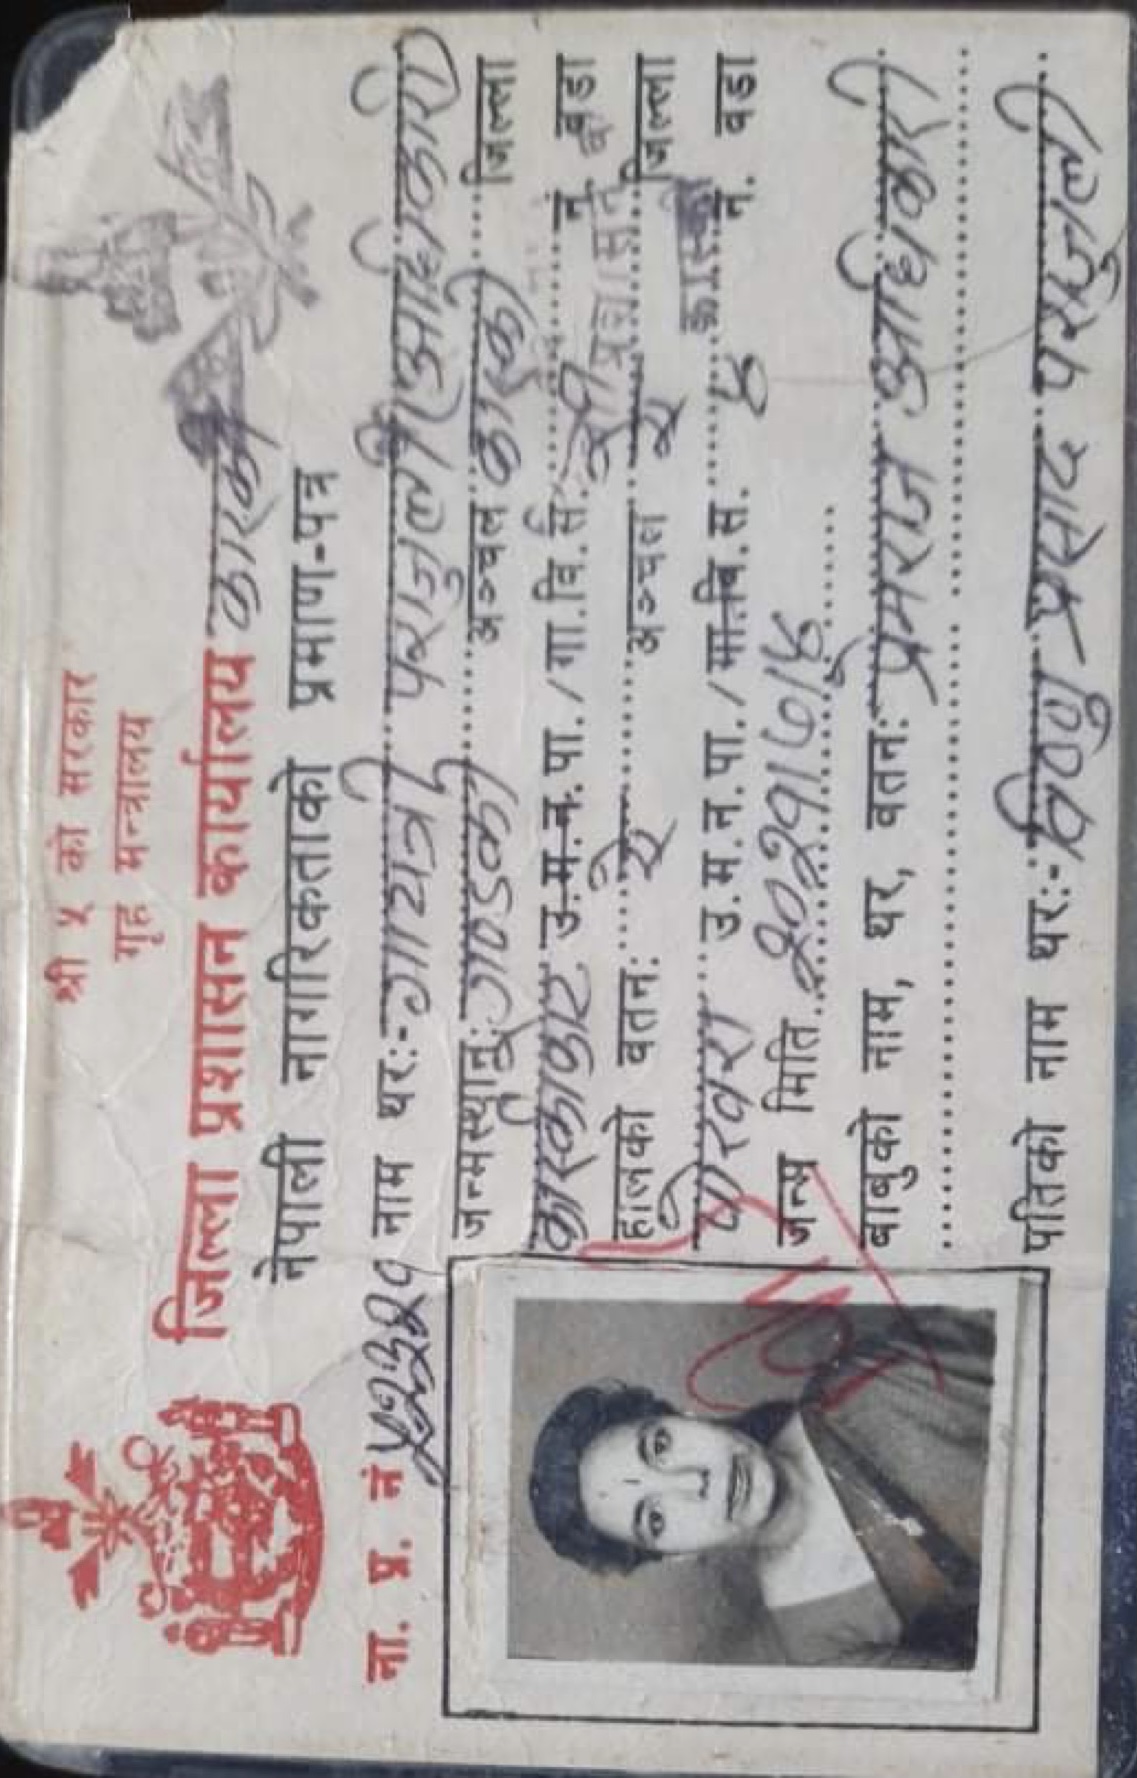 श्री ५ को सरकार
गृह मन्त्रालय
जिल्ला प्रशासन कार्यालय कास्की
नेपाली नागरिकताको प्रमाण-पत्र
ना. प्र. नं
नाम थर:- गायत्री पराजुली (अधिकारी)
जन्मस्थान: गण्डकी अञ्चल कास्की जिल्ला
उ.म.न.पा./गा.वि.स. नं वडा
हालको वतन: ऐ अञ्चल ऐ जिल्ला
पोखरा उ.म.न.पा./गा.वि.स. ८ नं. वडा
जन्म मिति २०२१।७।४
बाबुको नाम, थर, वतन: प्रेमराज अधिकारी
पतिको नाम थर:- विष्णु प्रसाद पराजुली